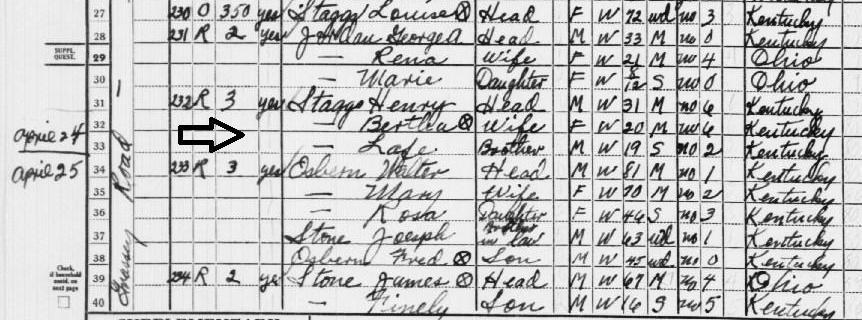 27 230 O 350 yes Staggs Louise Ⓧ Head F W 72 wd no 3 Kentucky
28 231 R 2 yes Jordan George A Head M W 33 M no 0 Kentucky
SUPPL. QUEST. 29 — Rena Wife F W 21 M no 4 Ohio
30 — Marie Daughter F W 8/12 S no 0 Ohio
31 232 R 3 yes Staggs Henry Head M W 31 M no 6 Kentucky
April 24 32 — Bertha Ⓧ Wife F W 20 M no 6 Kentucky
33 — Lafe Brother M W 19 S no 2 Kentucky
April 25 34 233 R 3 yes Osborn Walter Head M W 81 M no 1 Kentucky
35 — Mary Wife F W 70 M no 2 Kentucky
36 — Rosa Daughter F W 46 S no 3 Kentucky
37 Stone Joesph Brother in law M W 63 wd no 1 Kentucky
38 Osborn Fred Ⓧ Son M W 45 wd no 0 Kentucky
39 234 R 2 yes Stone James Ⓧ Head M W 67 M no 4 Ohio
40 — Finely Son M W 16 S no 5 Kentucky
Road
Check, if household contd. on next page